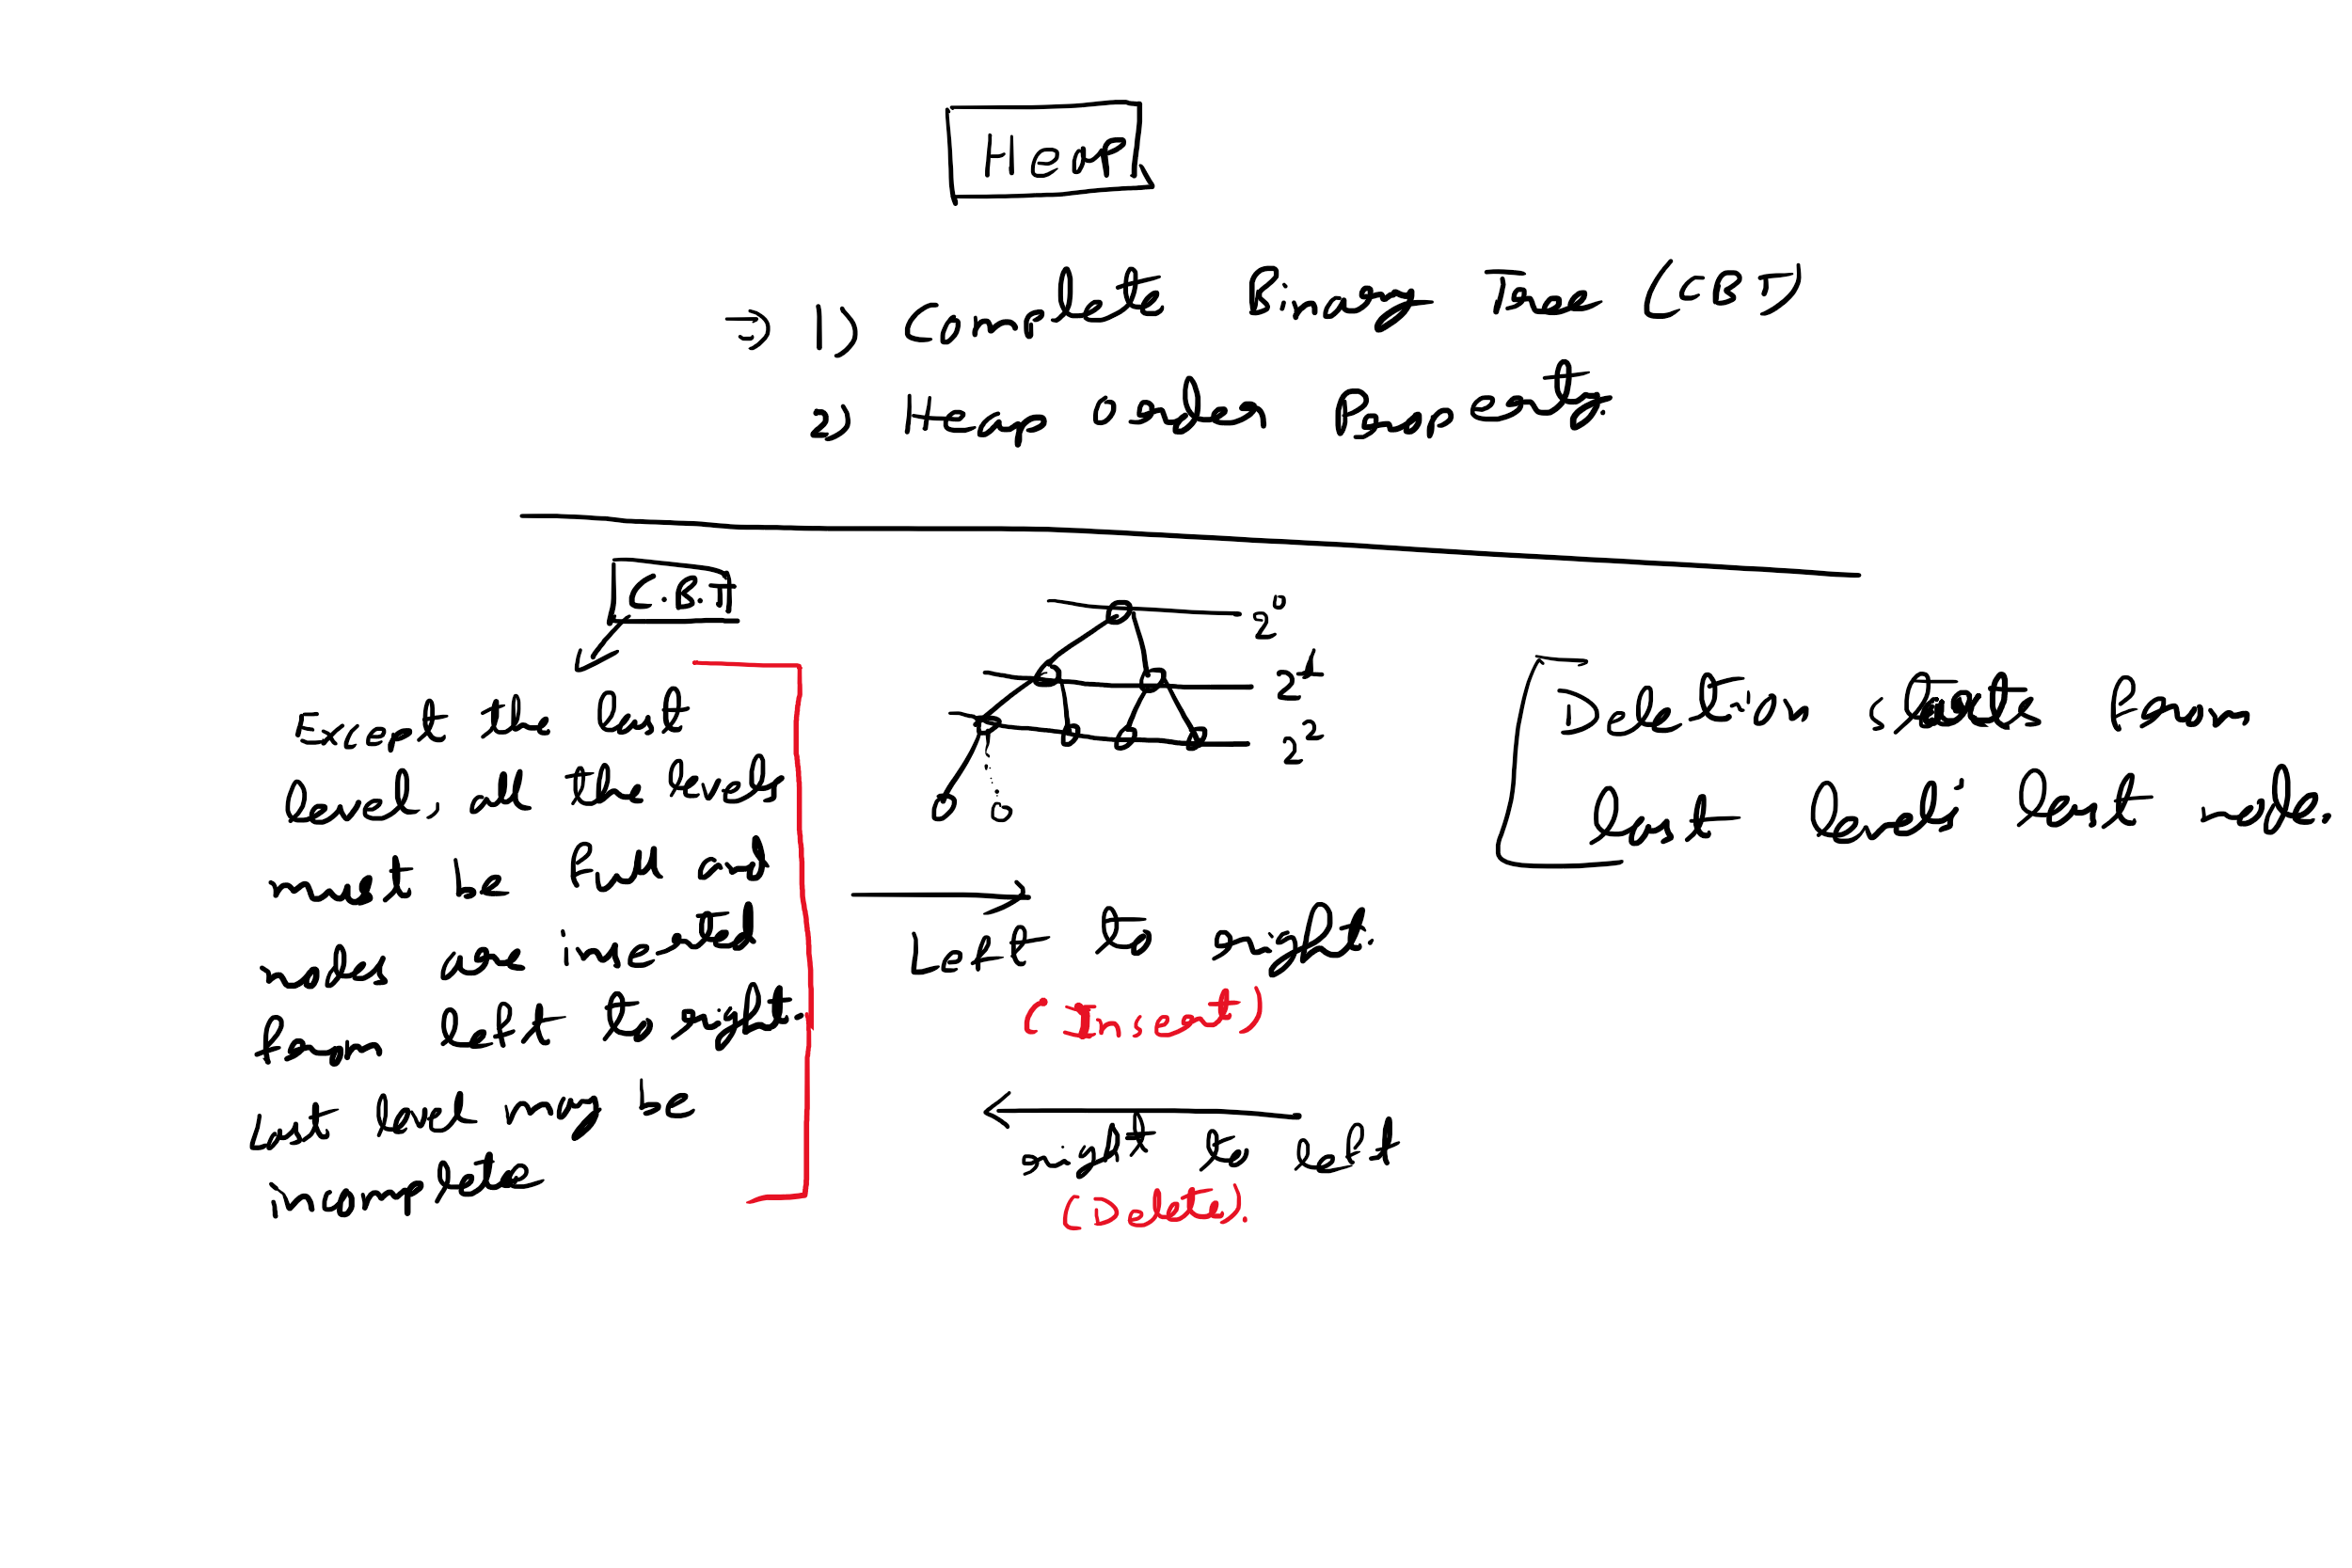 Heap
⇒ 1) Complete Binary Tree (CBT)
2) Heap order Property.
C.B.T
Except the last
level, all the levels
must be full and
nodes are inserted
from left to right.
Last level may be
incomplete
2⁰
2¹
2²
Left to right.
(Insert)
right to left
(Delete).
Deletion starts from
last level's last node.